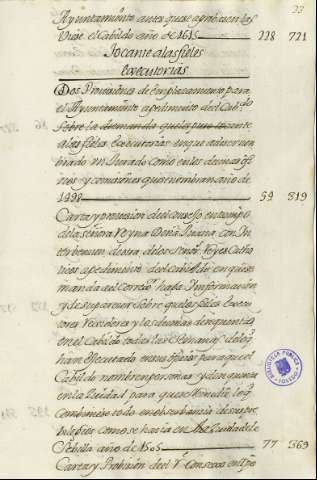 23
Ayuntamiento antes que se aprueuen las
Vise el Cabildo año de 1615 228 721
Tocante a las fieles
executorias
Dos Provisiones de emplazamiento para
el Ayuntamiento a pedimento del Cabdo
sobre la demanda que le puso tocante
a las fieles executorias en que ade ser nom
brado un Jurado como en las demas
y comisiones que se nombran año de
1498 54 319
Carta y provision del Consejo en tiempo
de la señora Reyna Doña Juana con In
terbencion de otra de los señores Reyes Catho
licos a pedimento del Cabildo en que se
manda al Corregor haga Informacion
y de su parecer sobre que los fieles execu
tores Rexidores y los demas den quenta
en el Cabildo todas las semanas de lo q
han executado en sus oficios para que el
Cabildo nombre personas y den quenta
en la Ciudad para que se Remedie lo q
combiniere todo en observancia de sus pre
bilegios como se hacia en la Ciudad de
Sebilla año de 1505 77 369
Carta y Probision del Rl Consexo en tpo
BIBLIOTECA PUBLICA
TOLEDO